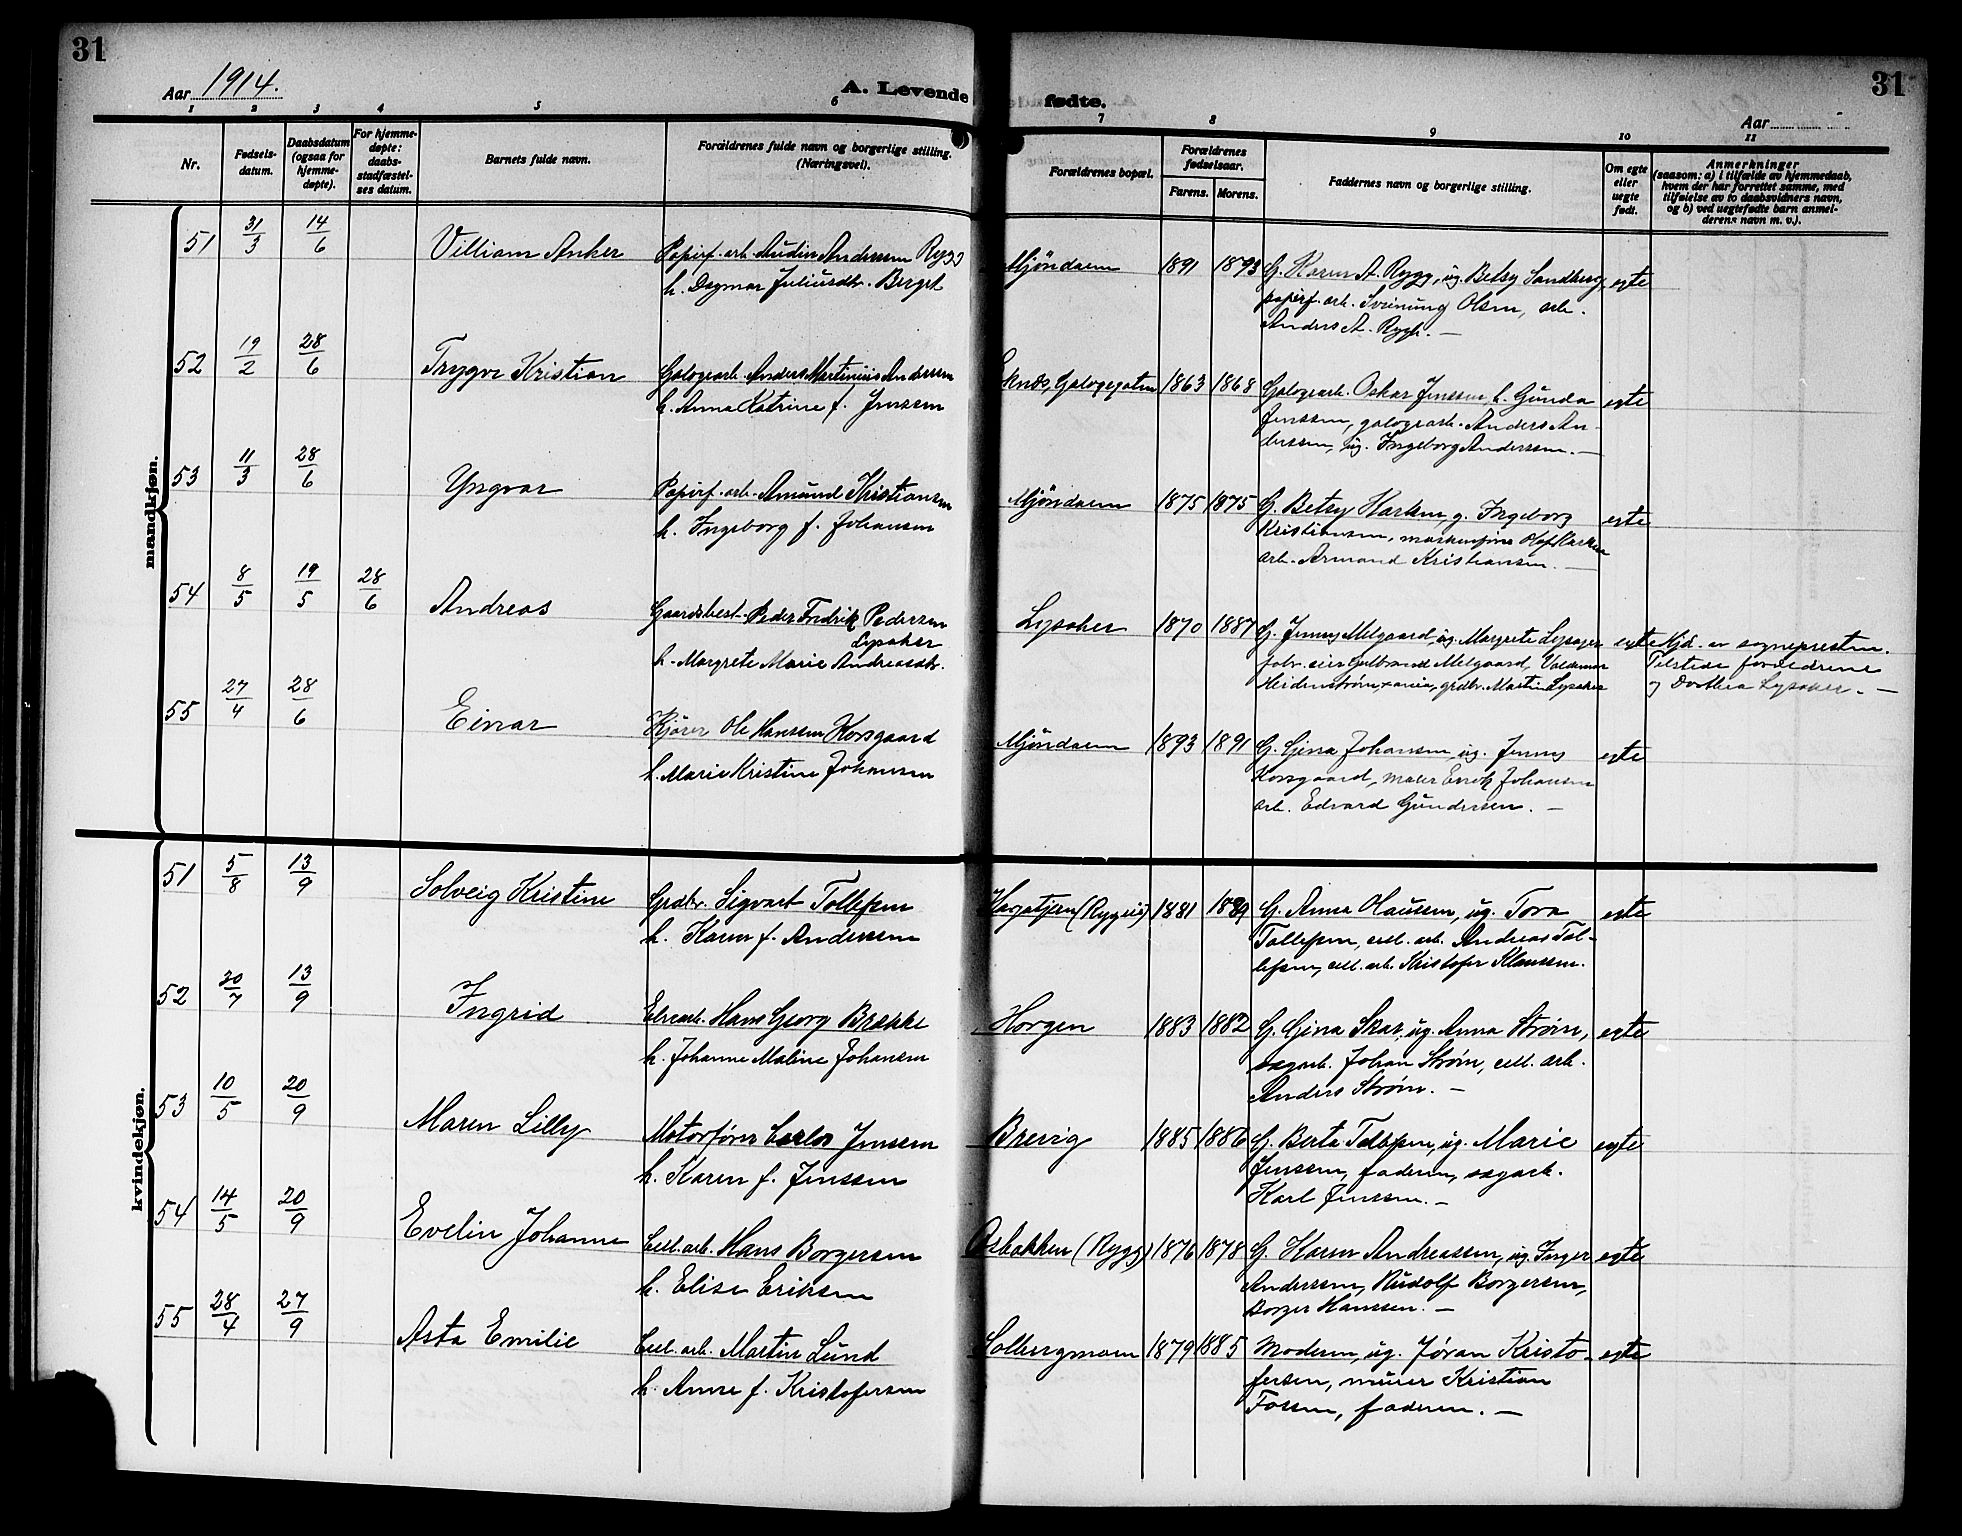 31
31
Aar 1914.
A. Levende fødte.
Aar
1 2 3 4 5 6 7 8 9 10 11
Nr.
Fødsels-
datum.
Daabsdatum
(ogsaa for
hjemme-
døpte).
For hjemme-
døpte:
daabs-
stadfæstel-
ses datum.
Barnets fulde navn.
Forældrenes fulde navn og borgerlige stilling.
(Næringsvei).
Forældrenes bopæl.
Forældrenes
fødselsaar.
Farens. Morens.
Faddernes navn og borgerlige stilling.
Om egte
eller
uegte
født.
Anmerkninger
(saasom: a) i tilfælde av hjemmedaab,
hvem der har forrettet samme, med
tilføielse av to daabsvidners navn,
og b) ved uegtefødte barn anmel-
derens navn m. v.).
mandkjøn.
51 31/3 14/6 Villiam Anker
Papirf. arb. Audin Anderssen Rygg
h. Dagmar Juliusdtr. Berget
Mjöndalen 1891 1893
G. Karen A. Rygg, ug. Betsy Sandberg,
papirf. arb. Sveinung Olsen, arb.
Anders A. Rygh. —
egte
52 19/2 28/6 Trygve Kristian
Galogearb. Anders Martinius Anderssen
h. Anna Katrine f. Jenssen
Galogegaten 1863 1868
Galogearb. Oskar Jenssen, h. Gunda
Jenssen, galogearb. Anders An-
derssen, ug. Ingeborg Anderssen. —
egte
53 11/3 28/6 Yngvar
Papirf. arb. Amund Kristiansen
h. Ingeborg f. Johansen
Mjöndalen 1875 1875
G. Betzy Karlsen, g. Ingeborg
Kristiansen, Olaf Karlsen
arb. Armand Kristiansen. —
egte
54 8/5 19/5 28/6 Andreas
Gaardbest. Peder Fredrik Pedersen
Lysaker
h. Margrete Marie Andreasdtr.
Lysaker 1870 1887
G. Jenny Melgaard, ug. Margrete Lysager
fabr. eier Gulbrand Melgaard, Valdemar
Heidenstrøm, grdbr. Martin Lysaker
egte
Hjd. av sognepresten.
Tilstede forældrene
og Dorthea Lysaker. —
55 27/4 28/6 Einar
Kjører Ole Hansen Korsgaard
h. Marie Kristine Johansen
Mjöndalen 1893 1891
G. Gina Johansen, ug. Jenny
Korsgaard, maler Enok Johansen
arb. Edvard Gundersen. —
egte
kvindekjøn.
51 5/8 13/9 Solveig Kristine
Grdbr. Sigvart Tollefsen
h. Karen f. Anderssen
Hagatjern (Ryggeig) 1881 1889
G. Anna Clausen, ug. Tora
Tollefsen, cell. arb. Andreas Tol-
lefsen, cell. arb. Kristofer Klaussen.
egte
52 20/7 13/9 Ingrid
Elvearb. Hans Georg Brække
h. Johanne Maline Johansen
Horgen 1883 1882
G. Gina Skar, ug. Anna Strøm,
sagarb. Johan Strøm, cell. arb.
Anders Strøm. —
egte
53 10/5 20/9 Maren Lilly
Motorfører Carlos Jenssen
h. Karen f. Jenssen
Brevig 1885 1886
G. Berta Tollefsen, ug. Marie
Jenssen, faderen, sagarb.
Karl Jenssen. —
egte
54 14/5 20/9 Evelin Johanne
Cell. arb. Hans Borgersen
h. Elise Eriksen
Osbakken (Rygg) 1876 1878
G. Karen Andreassen, ug. Inger
Anderssen, Rudolf Borgersen,
Borger Hanssen. —
egte
55 28/4 27/9 Asta Emilie
Cell. arb. Martin Lund
h. Anne f. Kristofersen
Solbergmoen 1879 1885
Moderen, ug. Jøran Kristo-
fersen, murer Kristian
Fossen, faderen. —
egte